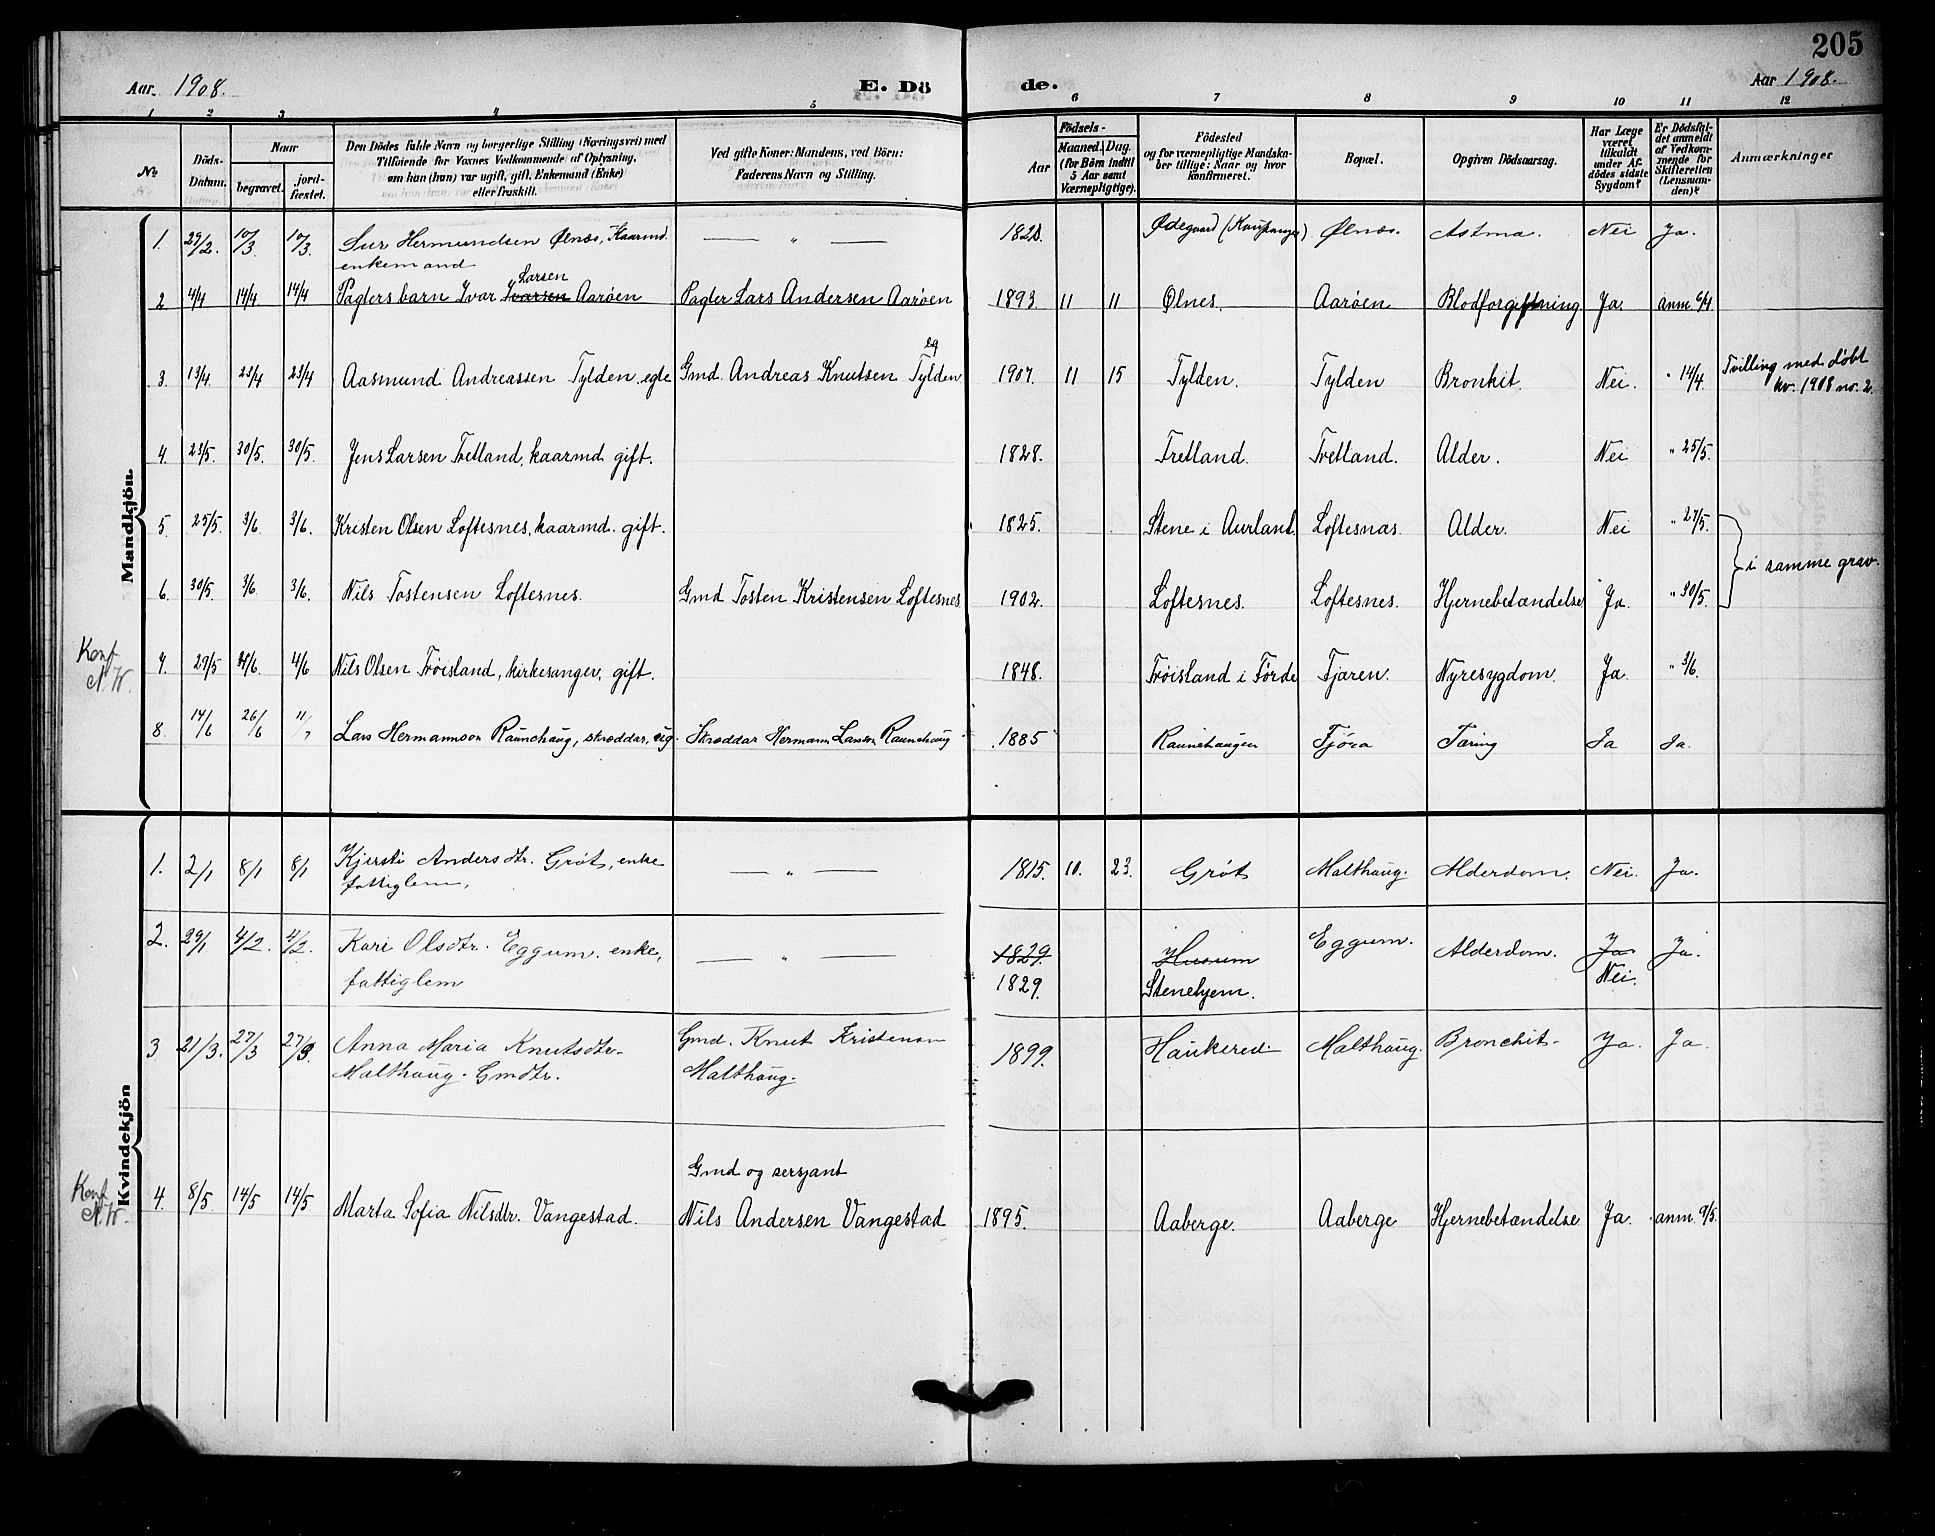 205
Aar. 1908.
E. Dö
de.
Aar 1908.
1 2 3 4 5 6 7 8 9 10 11 12
No
Döds-
Datum.
Naar
begravet.
jord-
fæstet.
Den Dödes fulde Navn og borgerlige Stilling (Næringsvei) med
Tilföiende for Voxnes Vedkommende af Oplysning,
om han (hun) var ugift, gift, Enkemand (Enke)
eller fraskilt.
Ved gifte Koner: Mandens, ved Börn:
Faderens Navn og Stilling.
Födsels-
Aar
Maaned. Dag.
(for Börn indtil
5 Aar samt
Værnepligtige).
Födested
og for værnepligtige Mandska-
ber tillige: Naar og hvor
konfirmeret.
Bopæl.
Opgiven Dödsaarsag.
Har Læge
været
tilkaldt
under Af-
dödes sidste
Sygdom?
Er Dödsfal-
det anmeldt
af Vedkom-
mende for
Skifteretten
(Lensman-
den)?
Anmærkninger
Mandkjön
1. 29/2. 10/3. 10/3. Sur Hermundsen Ølnæs, Kaarmd. — " — 1820. Ødegaard (Kaupanger) Ølnæs. Astma. Nei Ja.
enkemand
Larsen
2 4/4 14/4 14/4 Pagters barn Ivar Ivarsen Aarøen Pagter Lars Andersen Aarøen 1893. 11 11 Ølnes. Aarøen Blodforgiftning Ja. anm 6/4
eg
3. 13/4. 23/4 23/4 Aasmund Andreassen Tylden, egte Gmd. Andreas Knutsen Tylden 1907. 11 15 Tylden. Tylden Bronkit. Nei. " 14/4. Tvilling med døbt
kv. 1908 no. 2.
4. 23/5. 30/5. 30/5. Jens Larsen Tretland, kaarmd. gift. 1828. Tretland. Tretland. Alder. Nei " 25/5.
5. 25/5. 3/6. 3/6. Kristen Olsen Loftesnes, kaarmd. gift. 1825. Stene i Aurland. Loftesnas. Alder. Nei " 27/5.
i samme grav.
6. 30/5. 3/6 3/6. Nils Tostensen Loftesnes. Gmd Tosten Kristensen Loftesnes 1902. Loftesnes. Loftesnes. Hjernebetændelse Ja. " 30/5.
Konf.
N.W.
7. 29/5 4/6. 4/6 Nils Olsen Trøisland, kirkesanger, gift. 1848. Trøisland i Førde Fjæren. Nyresygdom. Ja. " 3/6.
8. 14/6 26/6 11/7 Lars Hermannson Raunehaug, skræddar, ug. Skræddar Hermann Larsen Raunehaug 1885 Raunehaugen Fjøra Tæring Ja Ja.
Kvindekjön
1. 2/1 8/1 8/1 Kjersti Andersdtr. Grøt, enke — " — 1815. 10. 23. Grøt Malthaug. Alderdom. Nei. Ja.
fattiglem,
2. 29/1 4/2. 4/2. Kari Olsdtr. Eggum. enke, — " — 1829. Husum Eggum. Alderdom. Ja Ja.
fattiglem 1829. Stenehjem. Nei.
3 21/3. 27/3 27/3 Anna Maria Knutsdtr. Gmd. Knut Kristensen 1899. Haukered Malthaug. Bronchit. Ja. Ja.
Malthaug. Gmdtr. Malthaug.
Konf.
N.W.
Gmd og sersjant
4. 8/5. 14/5 14/5 Marta Sofia Nilsdtr. Vangestad. Nils Andersen Vangestad 1895. Aaberge. Aaberge Hjernebetændelse Ja. anm. 9/5.